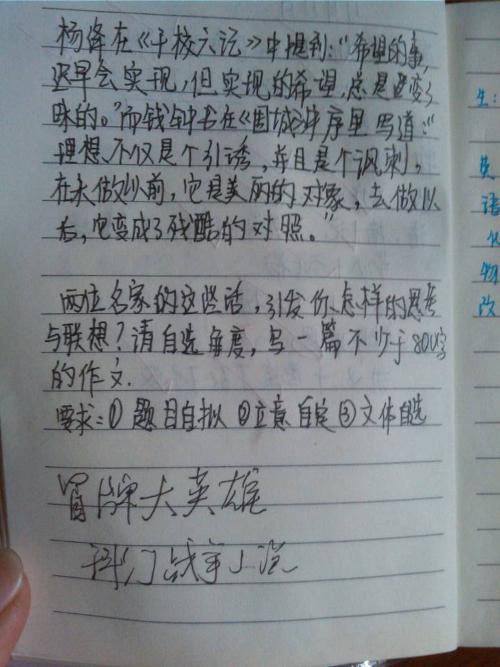 杨绛在《干校六记》中提到:"希望的事,
迟早会实现,但实现的希望,总是变了
味的。"而钱钟书在《围城》中序里写道:"
理想不仅是个引诱,并且是个讽刺。
在未做以前,它是美丽的对象,去做以
后,它变成了残酷的对照。"
两位名家的这些话,引发你怎样的思考
与联想?请自选角度,写一篇不少于800字
的作文.
要求:①题目自拟②立意自定③文体自选
冒牌大英雄
科幻战争小说
生:
语
从
物
改